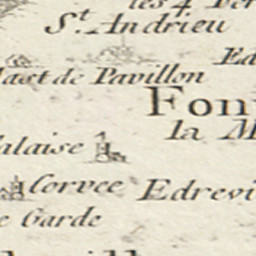 les 4
S.t Andrieu
Mast de Pavillon
Fon
la M
alaise
Corvee Edrevi
Garde